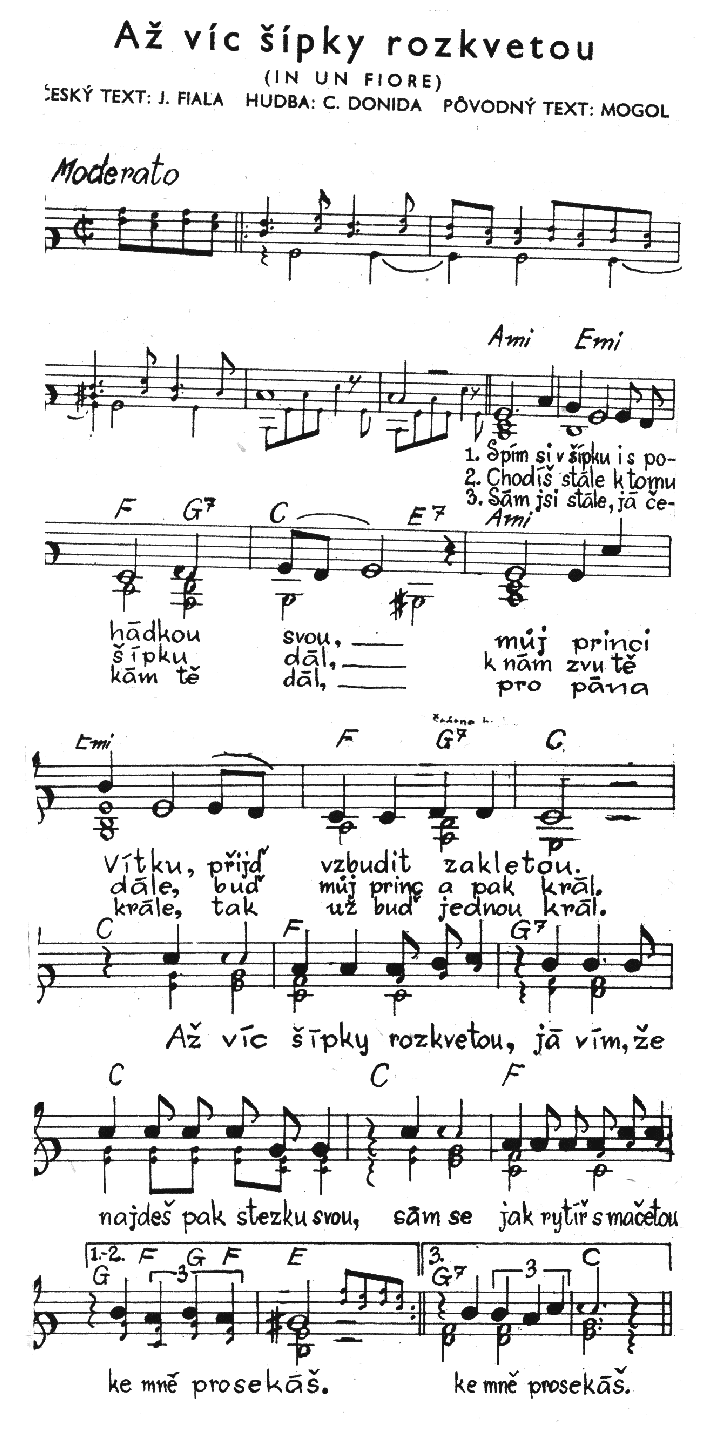 Až víc šípky rozkvetou
(IN UN FIORE)
ČESKÝ TEXT: J. FIALA HUDBA: C. DONIDA PÔVODNÝ TEXT: MOGOL
Moderato
Ami Emi
1. Spím si v šípku i s po-
2. Chodíš stále k tomu
3. Sám jsi stále, já če-
F G7 C E7 Ami
hádkou svou, můj princi
šípku dál, k nám zvu tě
kám tě dál, pro pána
Emi F G7 C
Vítku, přijď vzbudit zakletou.
dále, buď můj princ a pak král.
krále, tak už buď jednou král.
C F G7
Až víc šípky rozkvetou, já vím, že
C C F
najdeš pak stezku svou, sám se jak rytíř s mačetou
1.-2. F G F E 3. C
G 3 G7 3
ke mně prosekáš. ke mně prosekáš.